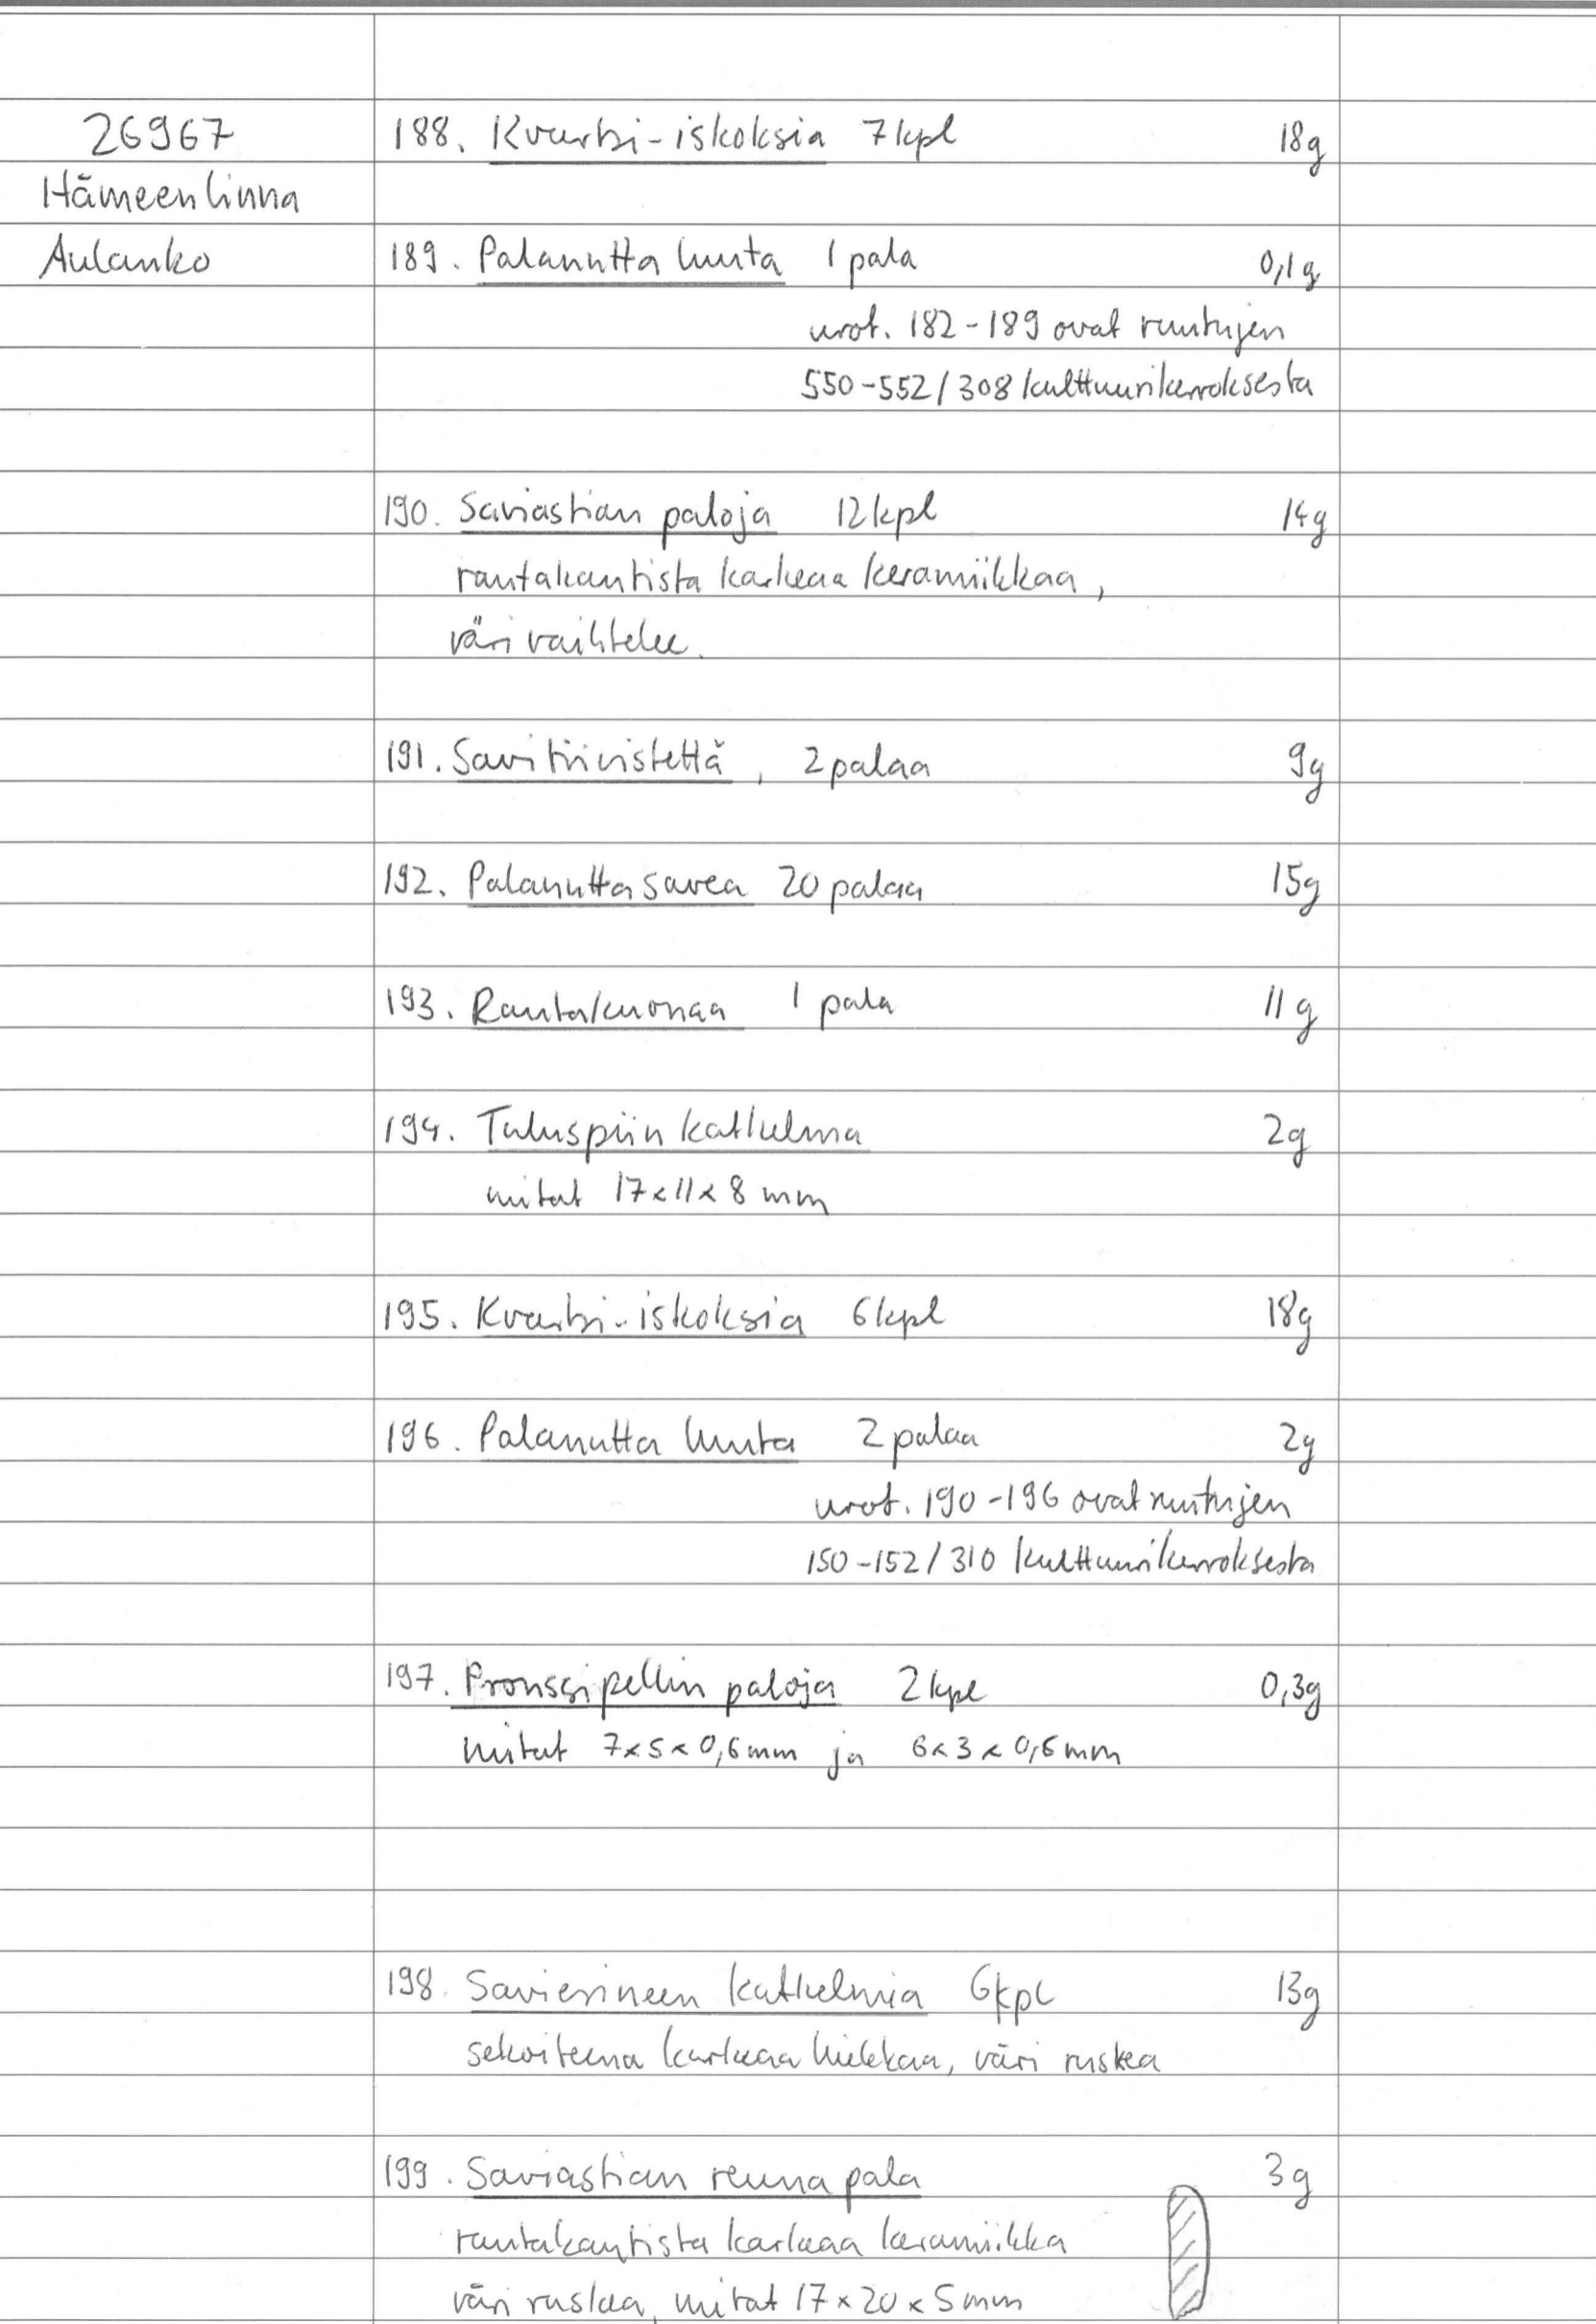 26967
Hämeenlinna
Aulanko
188. Kvartsi-iskoksia 7 kpl 18g
189. Palanutta luuta 1 pala 0,1g
nrot. 182-189 ovat ruutujen
550-552/308 kulttuurikerroksesta
190. Saviastian paloja 12 kpl 14g
rautakautista karkeaa keramiikkaa,
väri vaihtelee.
191. Savitiivistettä, 2 palaa 9g
192. Palanutta savea 20 palaa 15g
193. Rautakuonaa 1 pala 11g
194. Tuluspiin katkelma 2g
mitat 17x11x8 mm
195. Kvartsi-iskoksia 6 kpl 18g
196. Palanutta luuta 2 palaa 2g
nrot. 190-196 ovat ruutujen
150-152/310 kulttuurikerroksesta
197. Pronssipellin paloja 2 kpl 0,3g
mitat 7x5x0,6mm ja 6x3x0,6mm
198. Saviesineen katkelmia 6 kpl 13g
sekoiteena karkeaa hiekkaa, väri ruskea
199. Saviastian reunapala 3g
rautakautista karkeaa keramiikka
väri ruskea, mitat 17x20x5mm